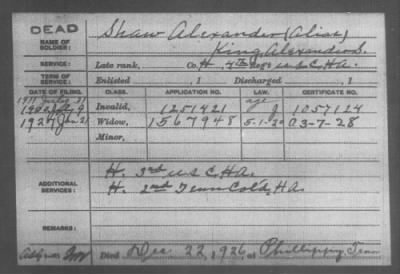 DEAD
NAME OF SOLDIER: Shaw Alexander (Alias)
King Alexander S.
SERVICE: Late rank, Co. H, 4th Reg't U.S.C.H.A.
TERM OF SERVICE: Enlisted , 1 Discharged , 1
DATE OF FILING. CLASS. APPLICATION NO. LAW. CERTIFICATE NO.
Invalid, 1251421 1057124
1927 Jan 21 Widow, 1567948 5-1-20 A 3-7-28
Minor,
ADDITIONAL SERVICES: H. 3rd U.S.C.H.A.
H. 2nd Tenn Cold. H.A.
REMARKS:
Died Dec 22, 1926, at Phillippy Tenn